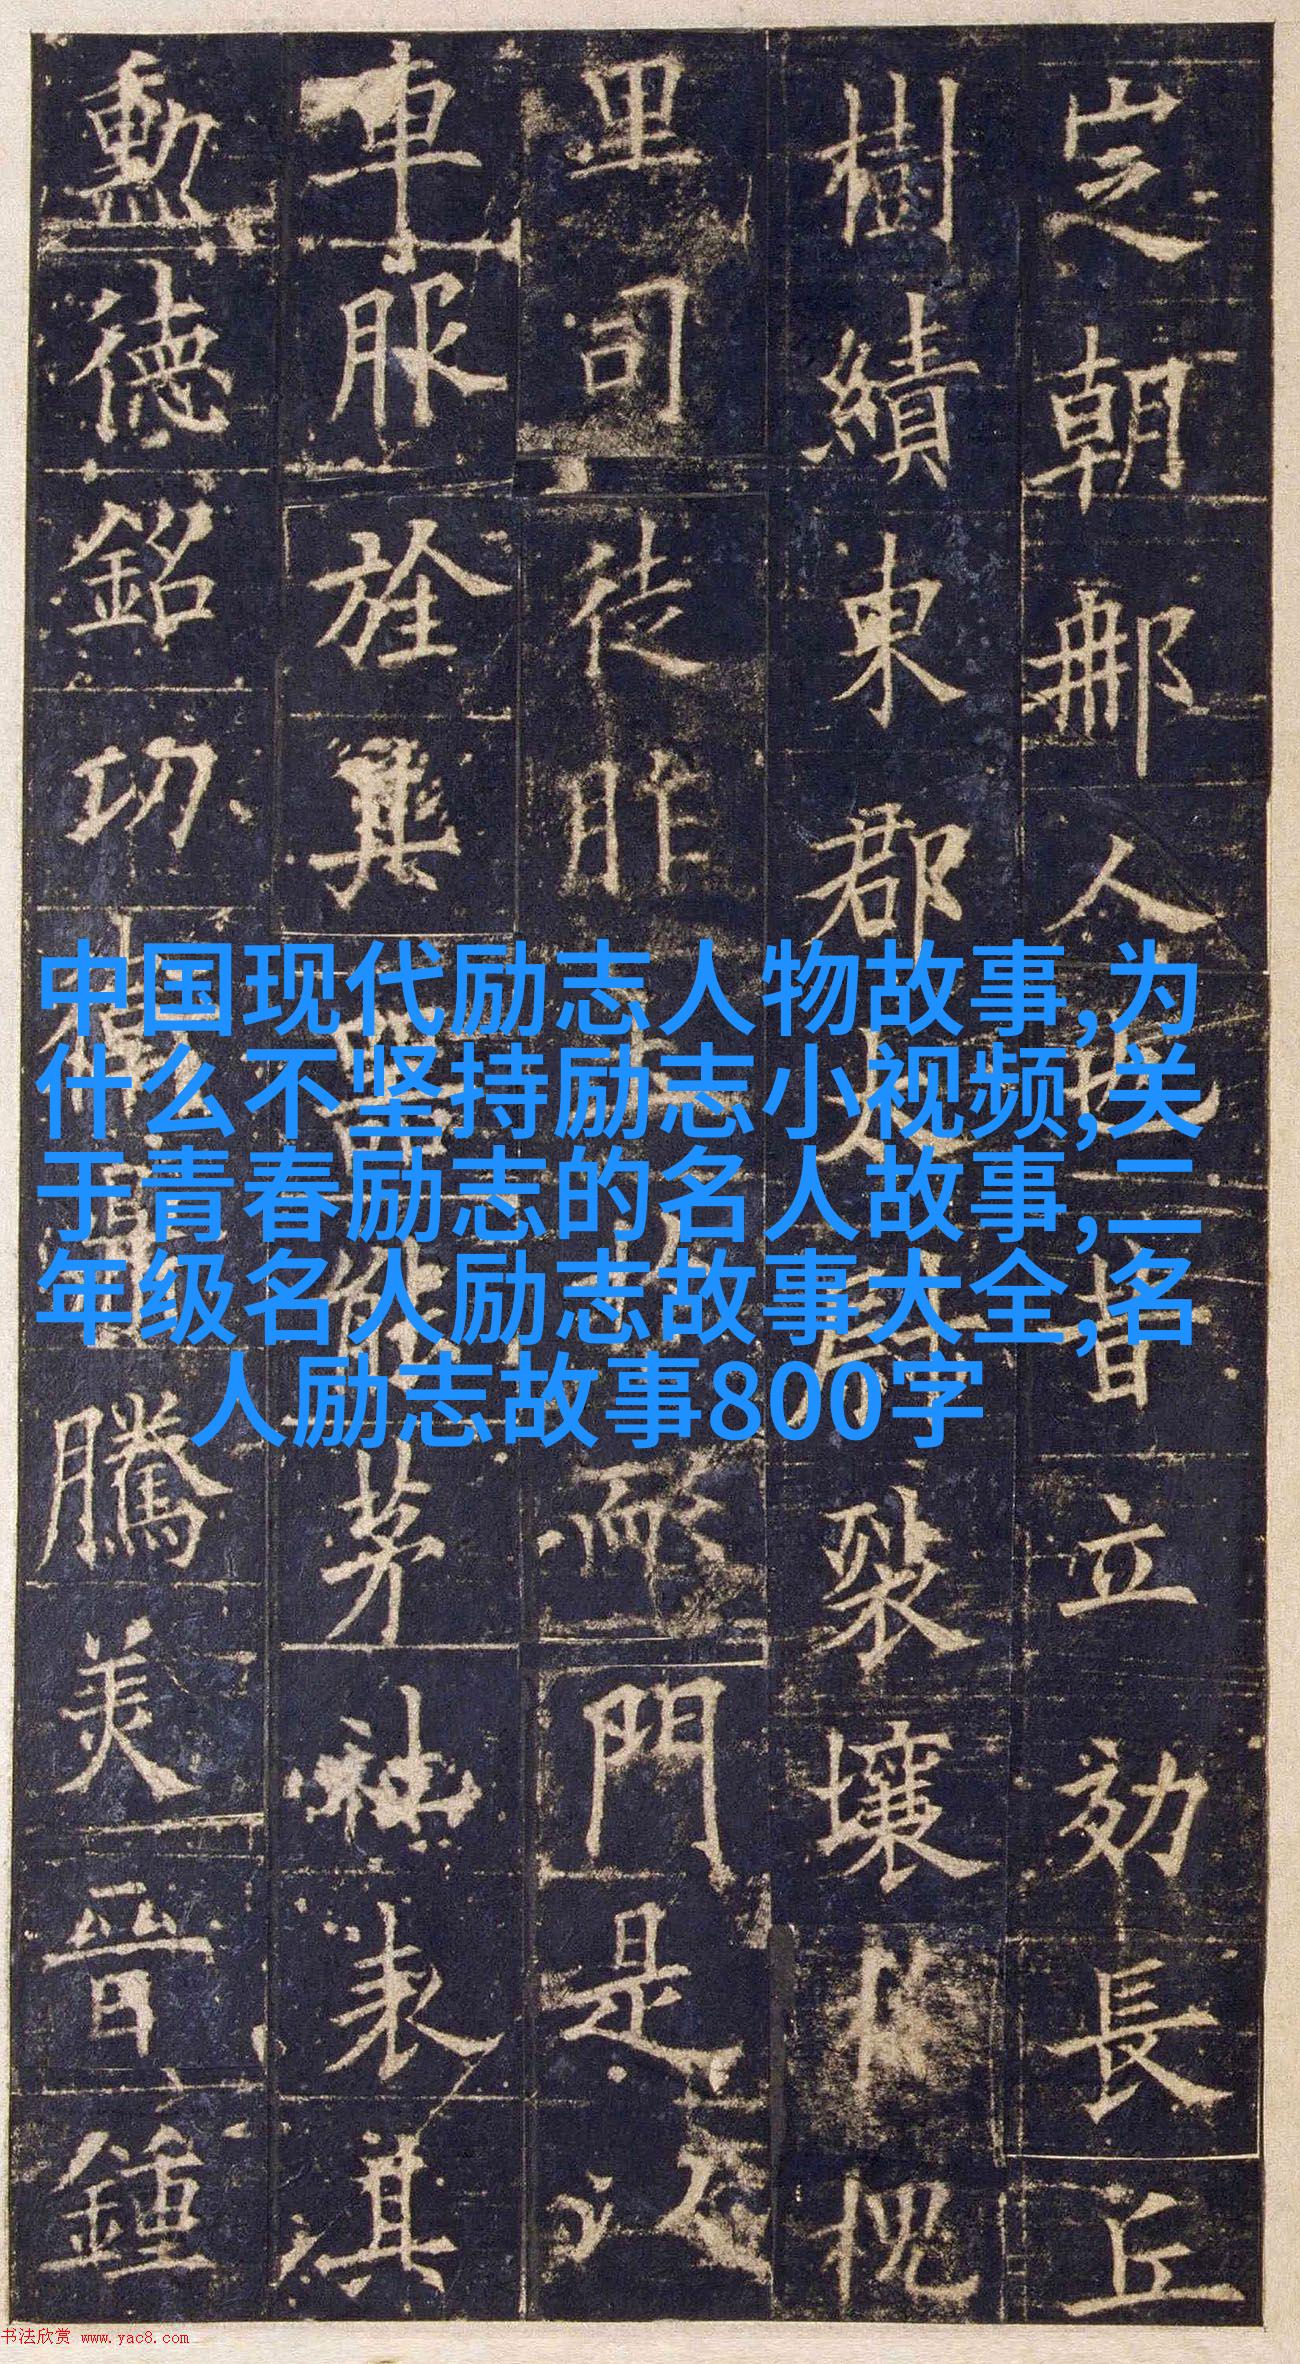 定朝那人也昔立効長丘
樹績東郡太尉裂壤於槐
里司徒胙土於耏門是以
車服旌其器能茅社表其
勳德銘功衛鼎騰美晉鍾
中国现代励志人物故事,为
什么不坚持励志小视频,关
于青春励志的名人故事,二
年级名人励志故事大全,名
人励志故事800字
书法欣赏 www.yac8.com